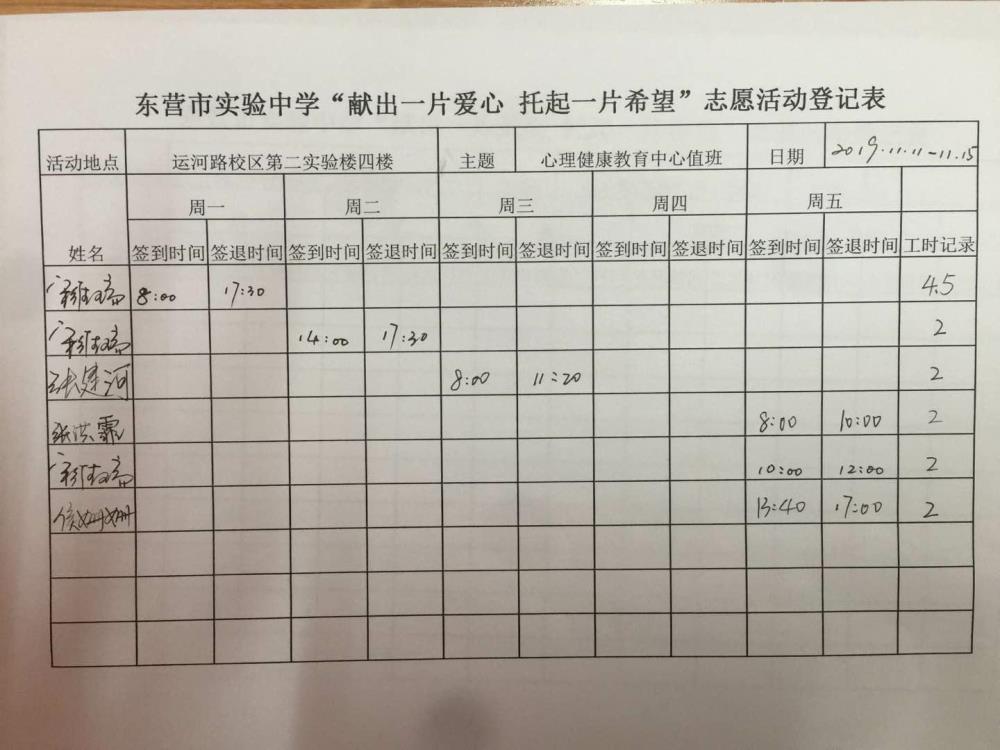 东营市实验中学“献出一片爱心 托起一片希望”志愿活动登记表
活动地点 运河路校区第二实验楼四楼 主题 心理健康教育中心值班 日期 2019.11.11-11.15
周一 周二 周三 周四 周五
姓名 签到时间 签退时间 签到时间 签退时间 签到时间 签退时间 签到时间 签退时间 签到时间 签退时间 工时记录
8:00 17:30 4.5
14:00 17:30 2
张建河 8:00 11:20 2
张洪霏 8:00 10:00 2
10:00 12:00 2
侯姗姗 13:40 17:00 2